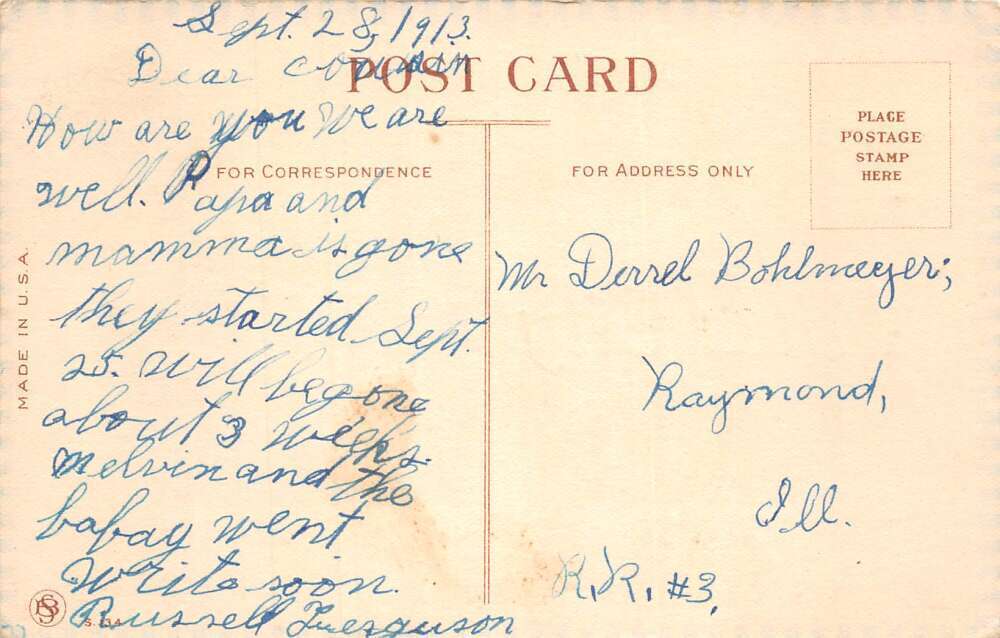 Sept. 28, 1913.
Dear cousin
POST CARD
How are you We are
FOR CORRESPONDENCE
well. Papa and
mamma is gone
they started Sept.
25. Will be gone
about 3 weeks.
Melvin and the
babay went
Write soon.
Russell Ferguson
MADE IN U.S.A.
FOR ADDRESS ONLY
PLACE
POSTAGE
STAMP
HERE
Mr Derrel Bohlmeyer;
Raymond,
Ill.
R.R. #3.